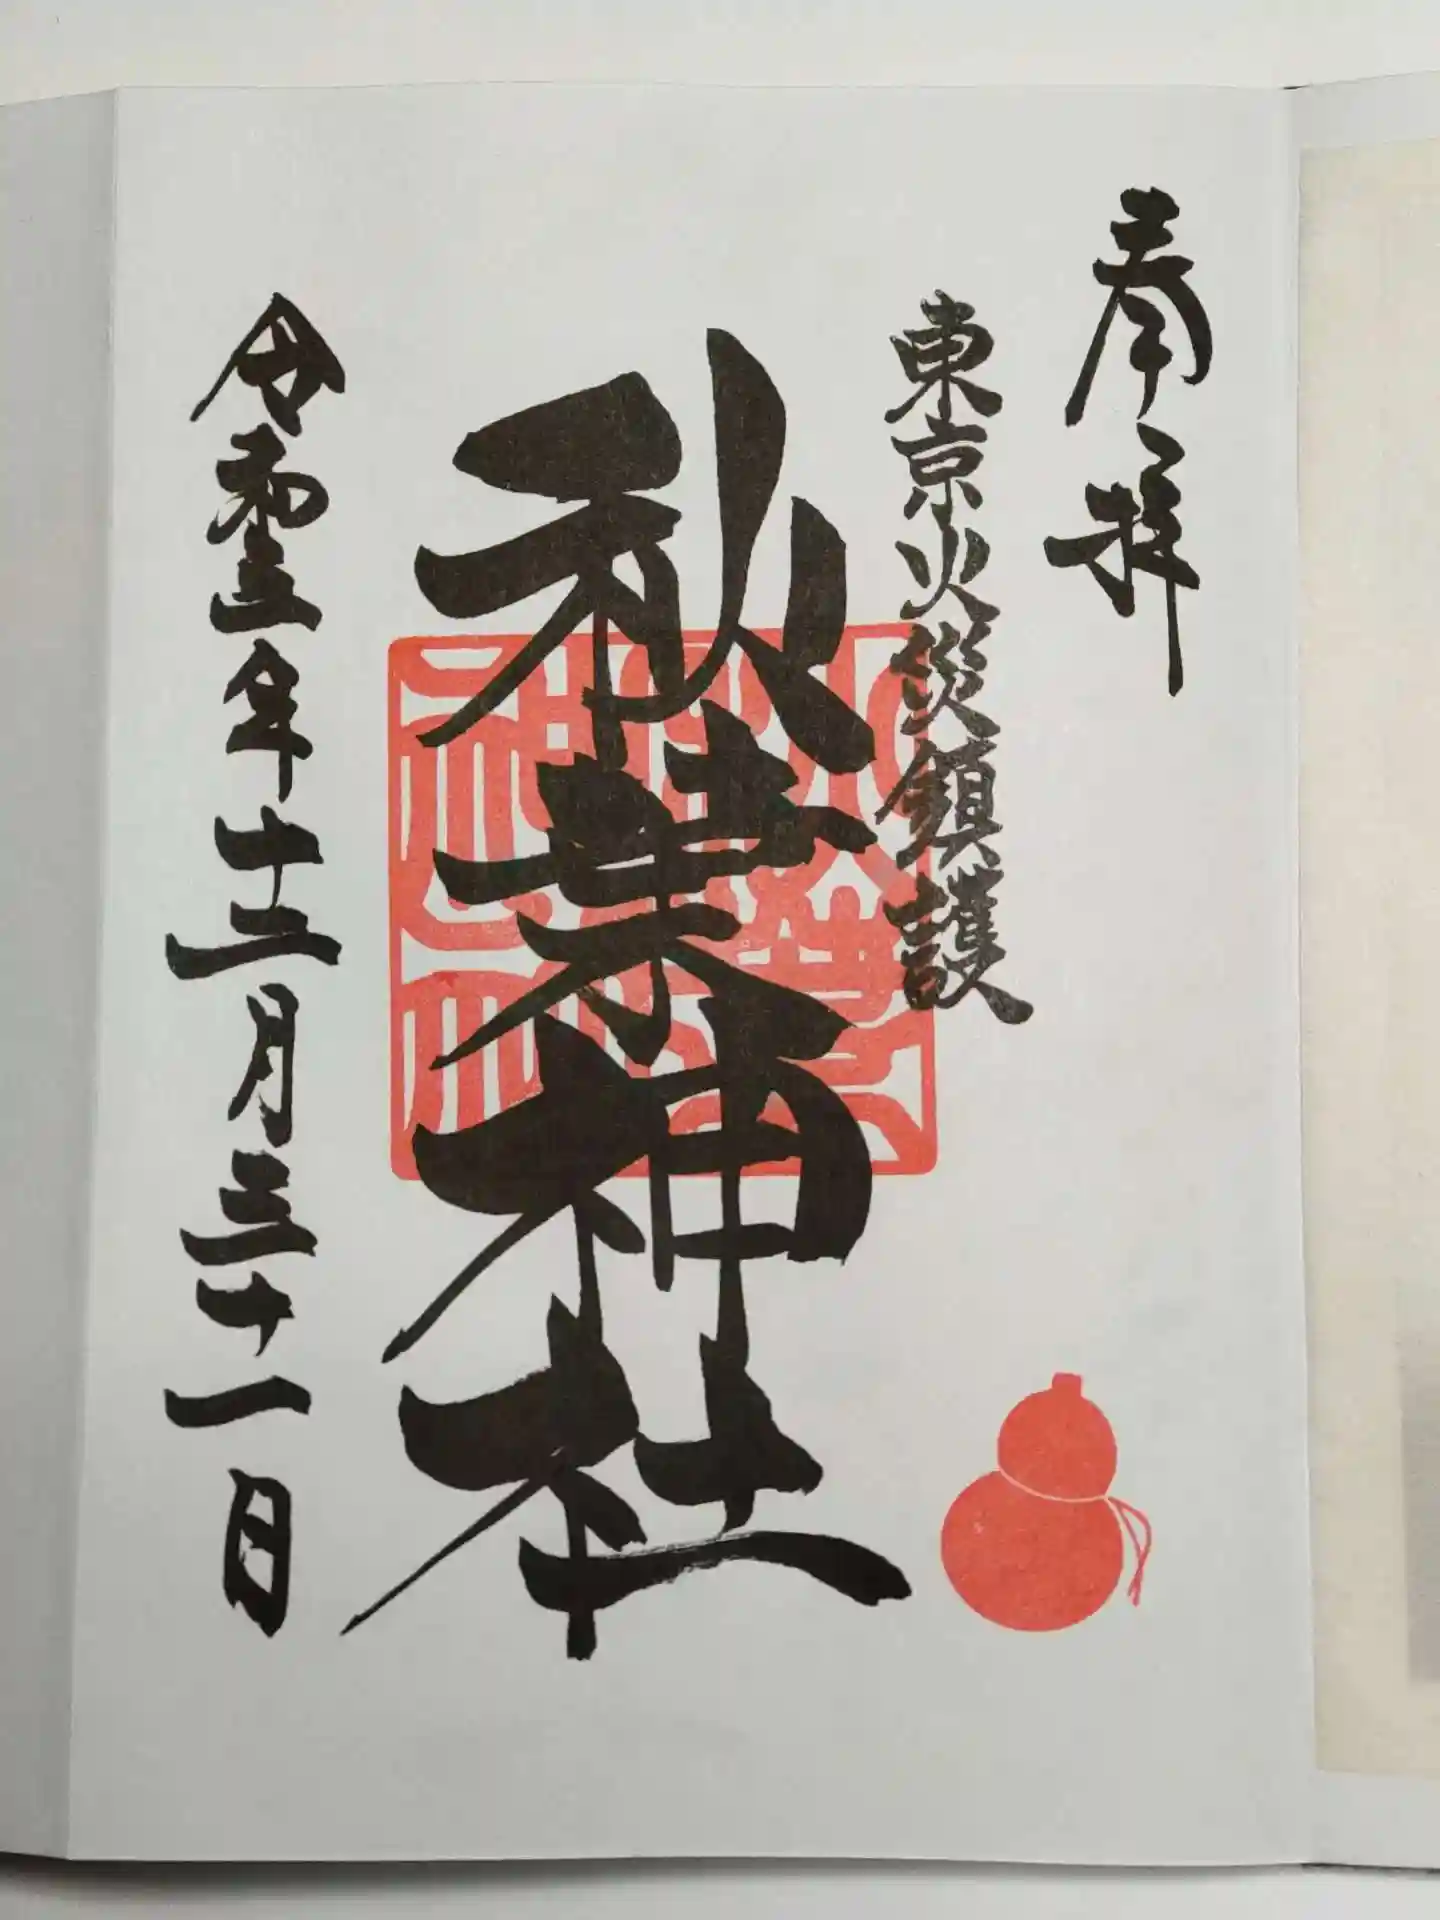 奉拝
東京火災鎮護
秋葉神社
令和五年十二月三十一日